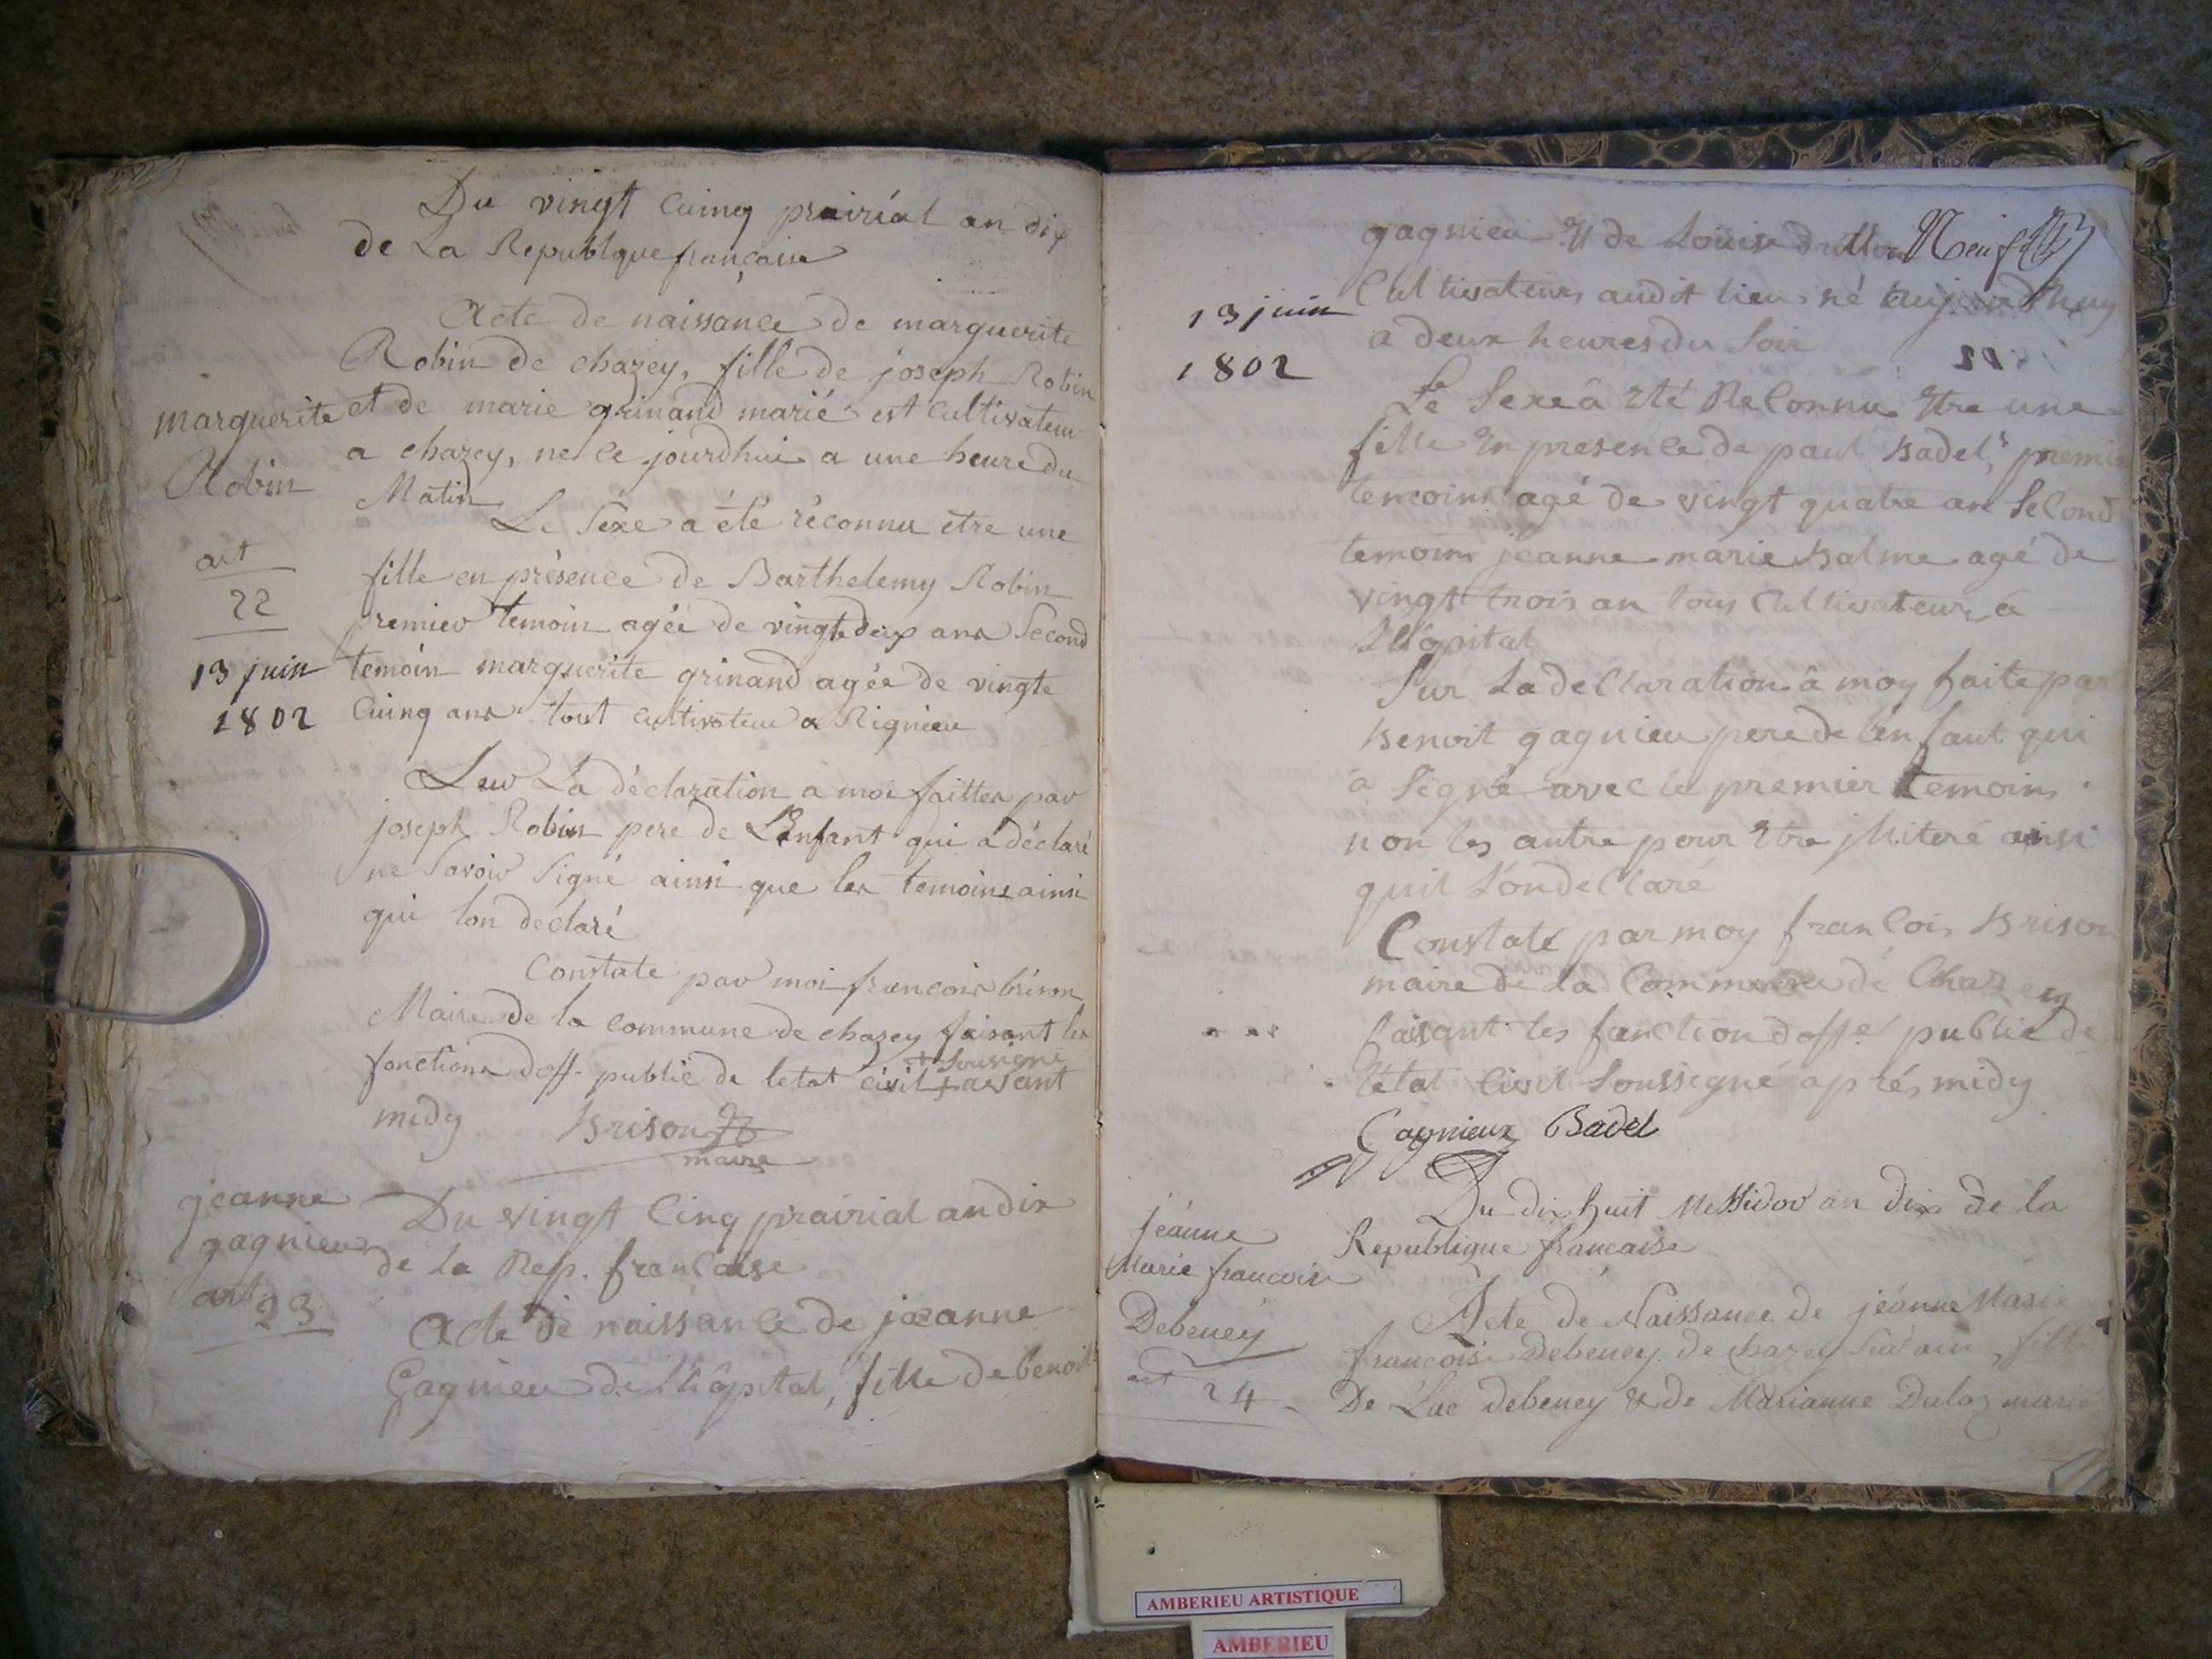 Du vingt cuinq prairial an dix
de La Republque francaise
Acte de naissance de marguerite
Robin de chazey, fille de joseph Robin
marguerite
et de marie grinand marié est Cultivateur
a chazey, ne le jourdhui a une heure du
Robin
Matin
Le Sexe a été réconnu etre une
art
22
fille en présence de Barthelemy Robin
premier temoin agée de vingte deux ans Second
13 juin
1802
temoin marguerite grinand agée de vingte
Cuinq ans tout cultivateur a Rignieu
Sur La déclaration a moi faittes par
joseph Robin pere de L'Enfant qui a déclaré
ne Savoir Signé ainsi que les temoins ainsi
qui lon declaré
Constate par moi francois brison
Maire de la commune de chazey faisant les
fonctions d'off. public de letat civil + avant
+ Sousigné
midy Brison
maire
jeanne
gagnieu
art
23
Du vingt Cinq prairial an dix
de La Rep. francaise
Acte de naissance de jeanne
Gagnieu de L'hôpital, fille de benoit
gagnieu et de Louise Neuf
13 juin
1802
Cultivateurs audit lieu né aujourdhuy
a deux heures du Soir
Le Sexe â eté ReConnu etre une
fille en presence de paul Badel, premier
temoins agé de vingt quatre an Second
temoins jeanne marie Balme agé de
vingt trois an tous Cultivateurs a
L'hôpital
Sur La declaration â moy faite par
Benoit gagnieu pere de lenfant qui
a Signé avec le premier temoins
non les autre pour etre jlliteré ainsi
quil L'on declaré
Constaté par moy francois Brison
maire de La Commune de Chazey
faisant les fonction d'off.e public de
l'état Civil Soussigné aprés midy
Gagnieux Badel
jéanne
Marie francoise
Debeney
art 24
Du dix huit Messidor an dix de la
Republique francaise
Acte de Naissance de jéanne Marie
francoise Debeney de chazey Sur ain, fille
De Luc debeney & de Marianne Duloz marié
AMBERIEU ARTISTIQUE
AMBERIEU